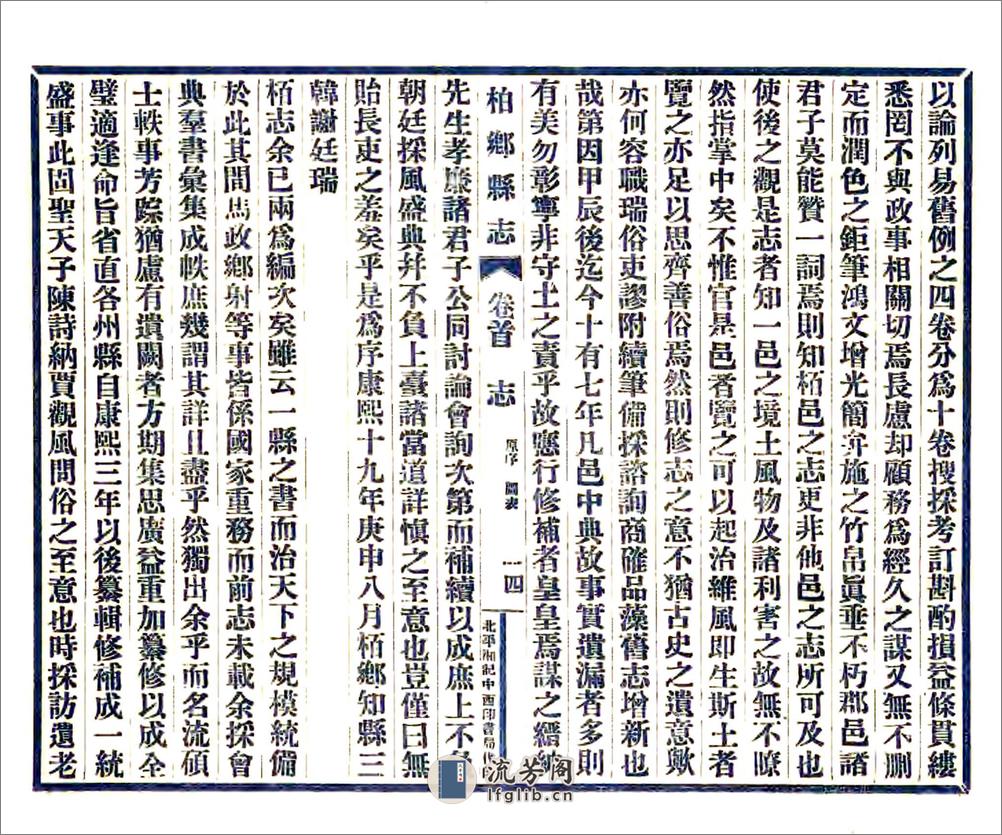 以論列易舊例之四卷分爲十卷搜採考訂斟酌損益條貫縷
悉罔不與政事相關切焉長慮却顧務爲經久之謀又無不刪
定而潤色之鉅筆鴻文增光簡弁施之竹帛眞垂不朽郡邑諸
君子莫能贊一詞焉則知栢邑之志更非他邑之志所可及也
使後之觀是志者知一邑之境土風物及諸利害之故無不瞭
然指掌中矣不惟官是邑者覽之可以起治維風即生斯土者
覽之亦足以思齊善俗焉然則修志之意不猶古史之遺意歟
亦何容職瑞俗吏謬附續筆備採諮詢商確品藻舊志增新也
哉第因甲辰後迄今十有七年凡邑中典故事實遺漏者多則
有美勿彰寧非守土之責乎故應行修補者皇皇焉謀之縉紳
柏鄉縣志 卷首 志 原序 圖表 四 北平湘記中西印書局
先生孝廉諸君子公同討論會詢次第而補續以成庶上不負
朝廷採風盛典幷不負上臺諸當道詳愼之至意也豈僅曰無
貽長吏之羞矣乎是爲序康熙十九年庚申八月栢鄉知縣三
韓謝廷瑞
栢志余已兩爲編次矣雖云一縣之書而治天下之規模統備
於此其間馬政鄉射等事皆係國家重務而前志未載余採會
典羣書彙集成帙庶幾謂其詳且盡乎然獨出余乎而名流碩
士軼事芳踪猶慮有遺闕者方期集思廣益重加纂修以成全
璧適逢命旨省直各州縣自康熙三年以後纂輯修補成一統
盛事此固聖天子陳詩納賈觀風問俗之至意也時採訪遺老
流芳閣
lfglib.cn